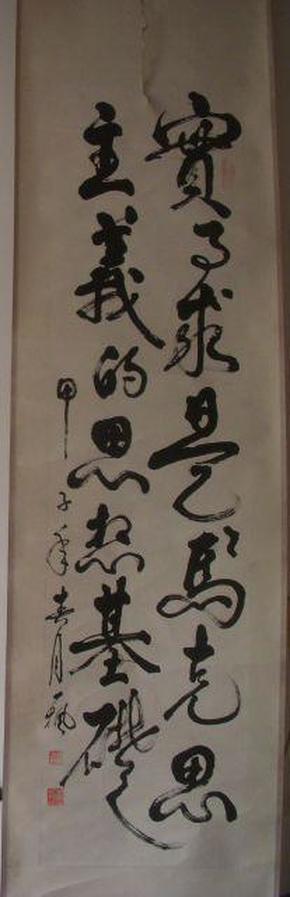 實事求是馬克思
主義的思想基礎
甲子年春月